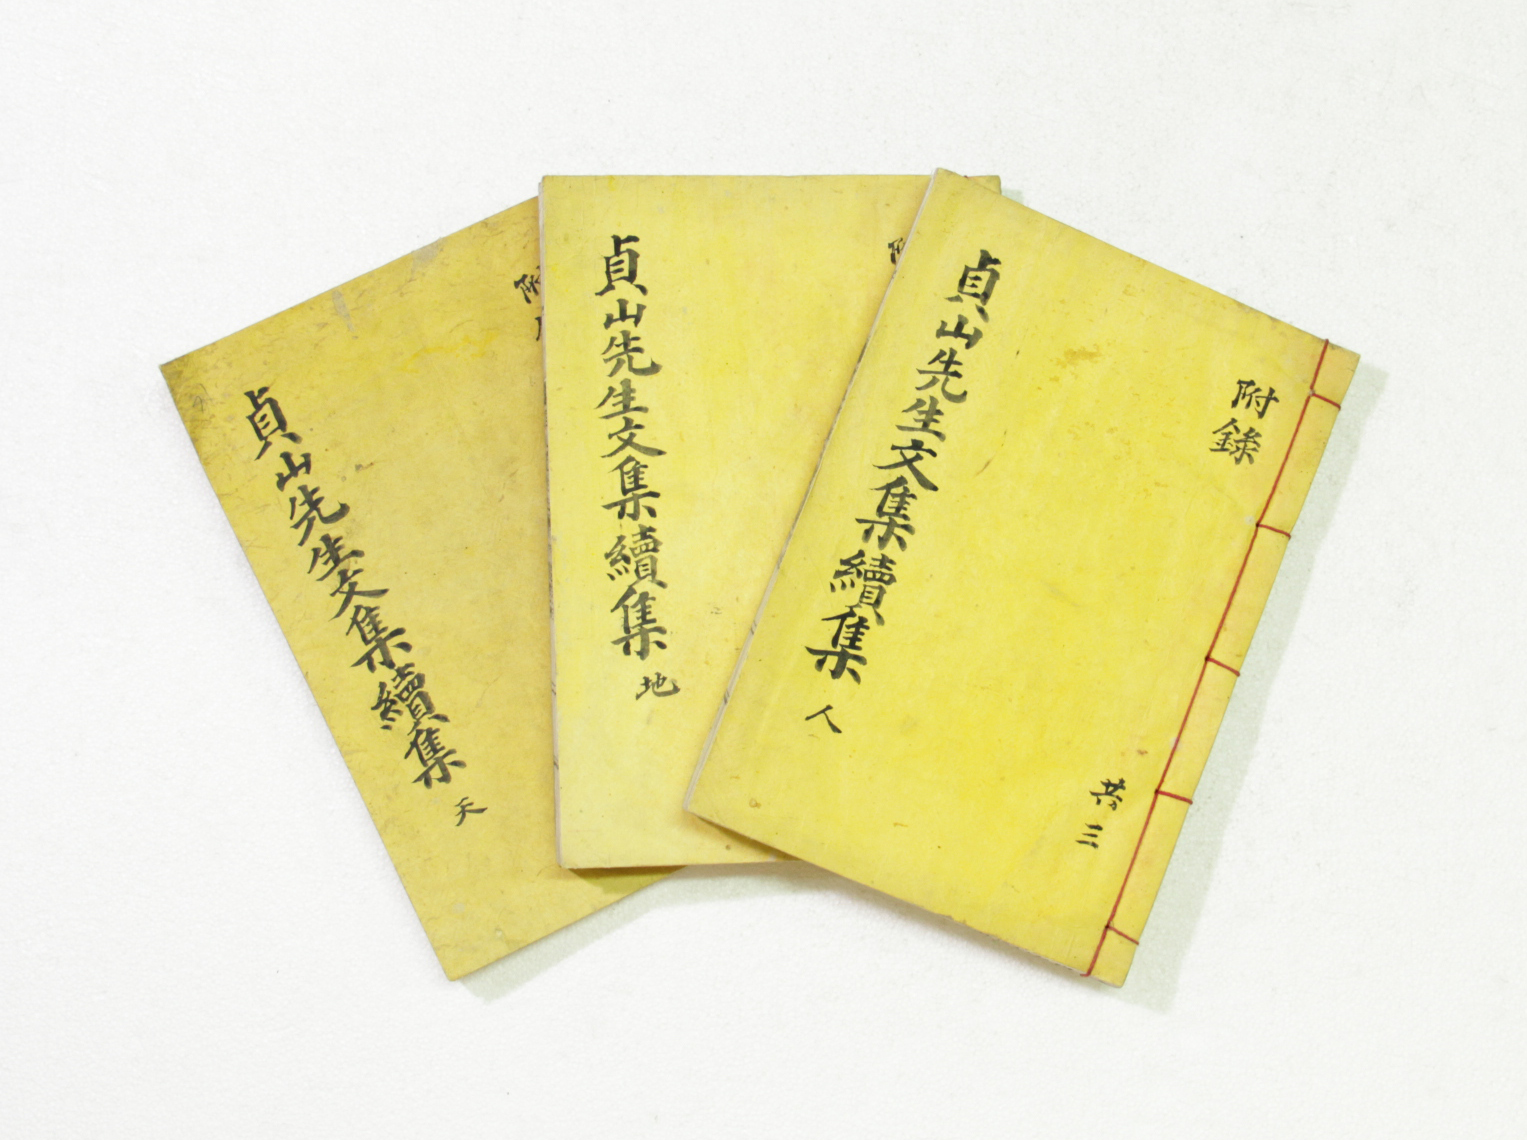 貞山先生文集續集 天
附
貞山先生文集續集 地
貞山先生文集續集 人
附錄
共三